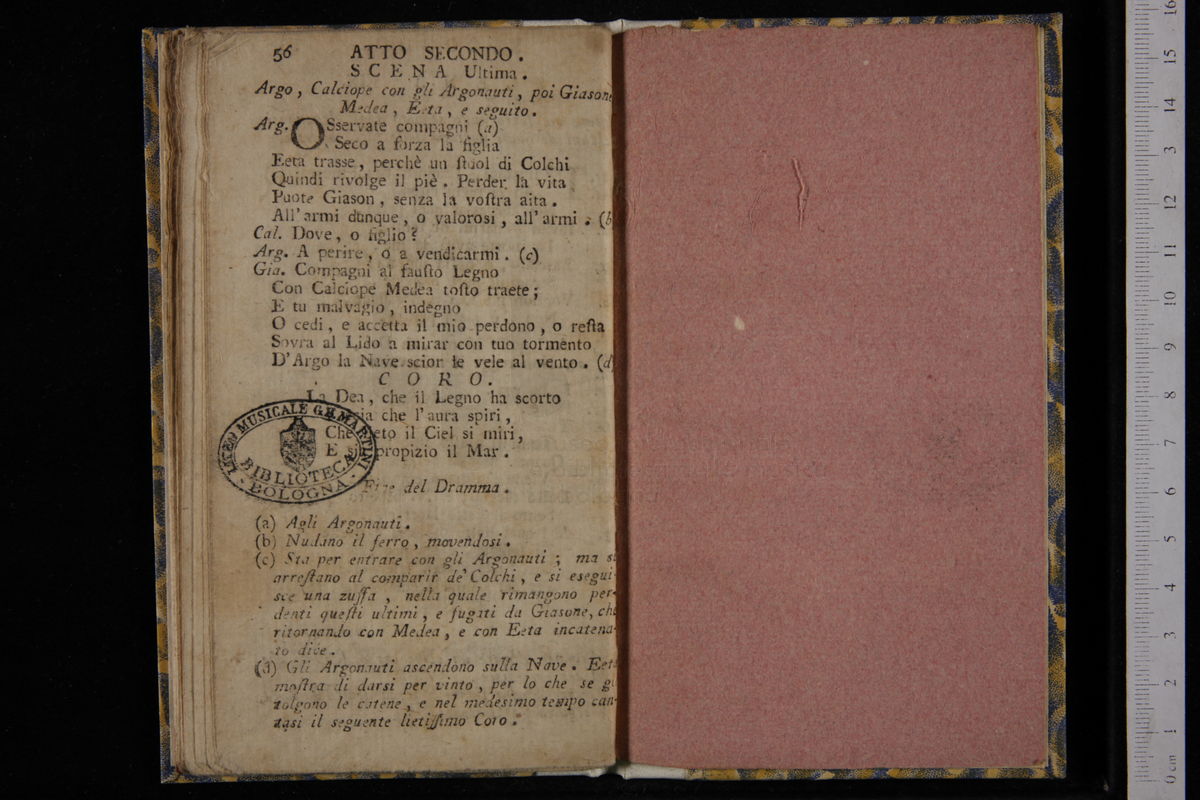 56 ATTO SECONDO.
SCENA Ultima.
Argo, Calciope con gli Argonauti, poi Giasone
Medea, Eeta, e seguito.
Arg. OSservate compagni (a)
Seco a forza la figlia
Eeta trasse, perchè un ſtuol di Colchi
Quindi rivolge il piè. Perder la vita
Puote Giason, senza la voſtra aita.
All'armi dunque, o valorosi, all'armi. (b
Cal. Dove, o figlio?
Arg. A perire, o a vendicarmi. (c)
Gia. Compagni al fauſto Legno
Con Calciope Medea toſto traete;
E tu malvagio, indegno
O cedi, e accetta il mio perdono, o reſta
Sovra al Lido a mirar con tuo tormento
D'Argo la Nave scior le vele al vento. (d
CORO.
La Dea, che il Legno ha scorto
che l'aura spiri,
Che il Ciel si miri,
E propizio il Mar.
Fine del Dramma.
LICEO MUSICALE G.B. MARTINI
BIBLIOTECA
BOLOGNA
(a) Agli Argonauti.
(b) Nudano il ferro, movendosi.
(c) Sta per entrare con gli Argonauti; ma si
arreſtano al comparir de' Colchi, e si esegui-
sce una zuffa, nella quale rimangono per-
denti queſti ultimi, e fugati da Giasone, che
ritornando con Medea, e con Eeta incatena-
to dice.
(d) Gli Argonauti ascendono sulla Nave. Eeta
moſtra di darsi per vinto, per lo che se gl
tolgono le catene, e nel medesimo tempo can-
tasi il seguente lietiſſimo Coro.
0 cm 1 2 3 4 5 6 7 8 9 10 11 12 13 14 15 16